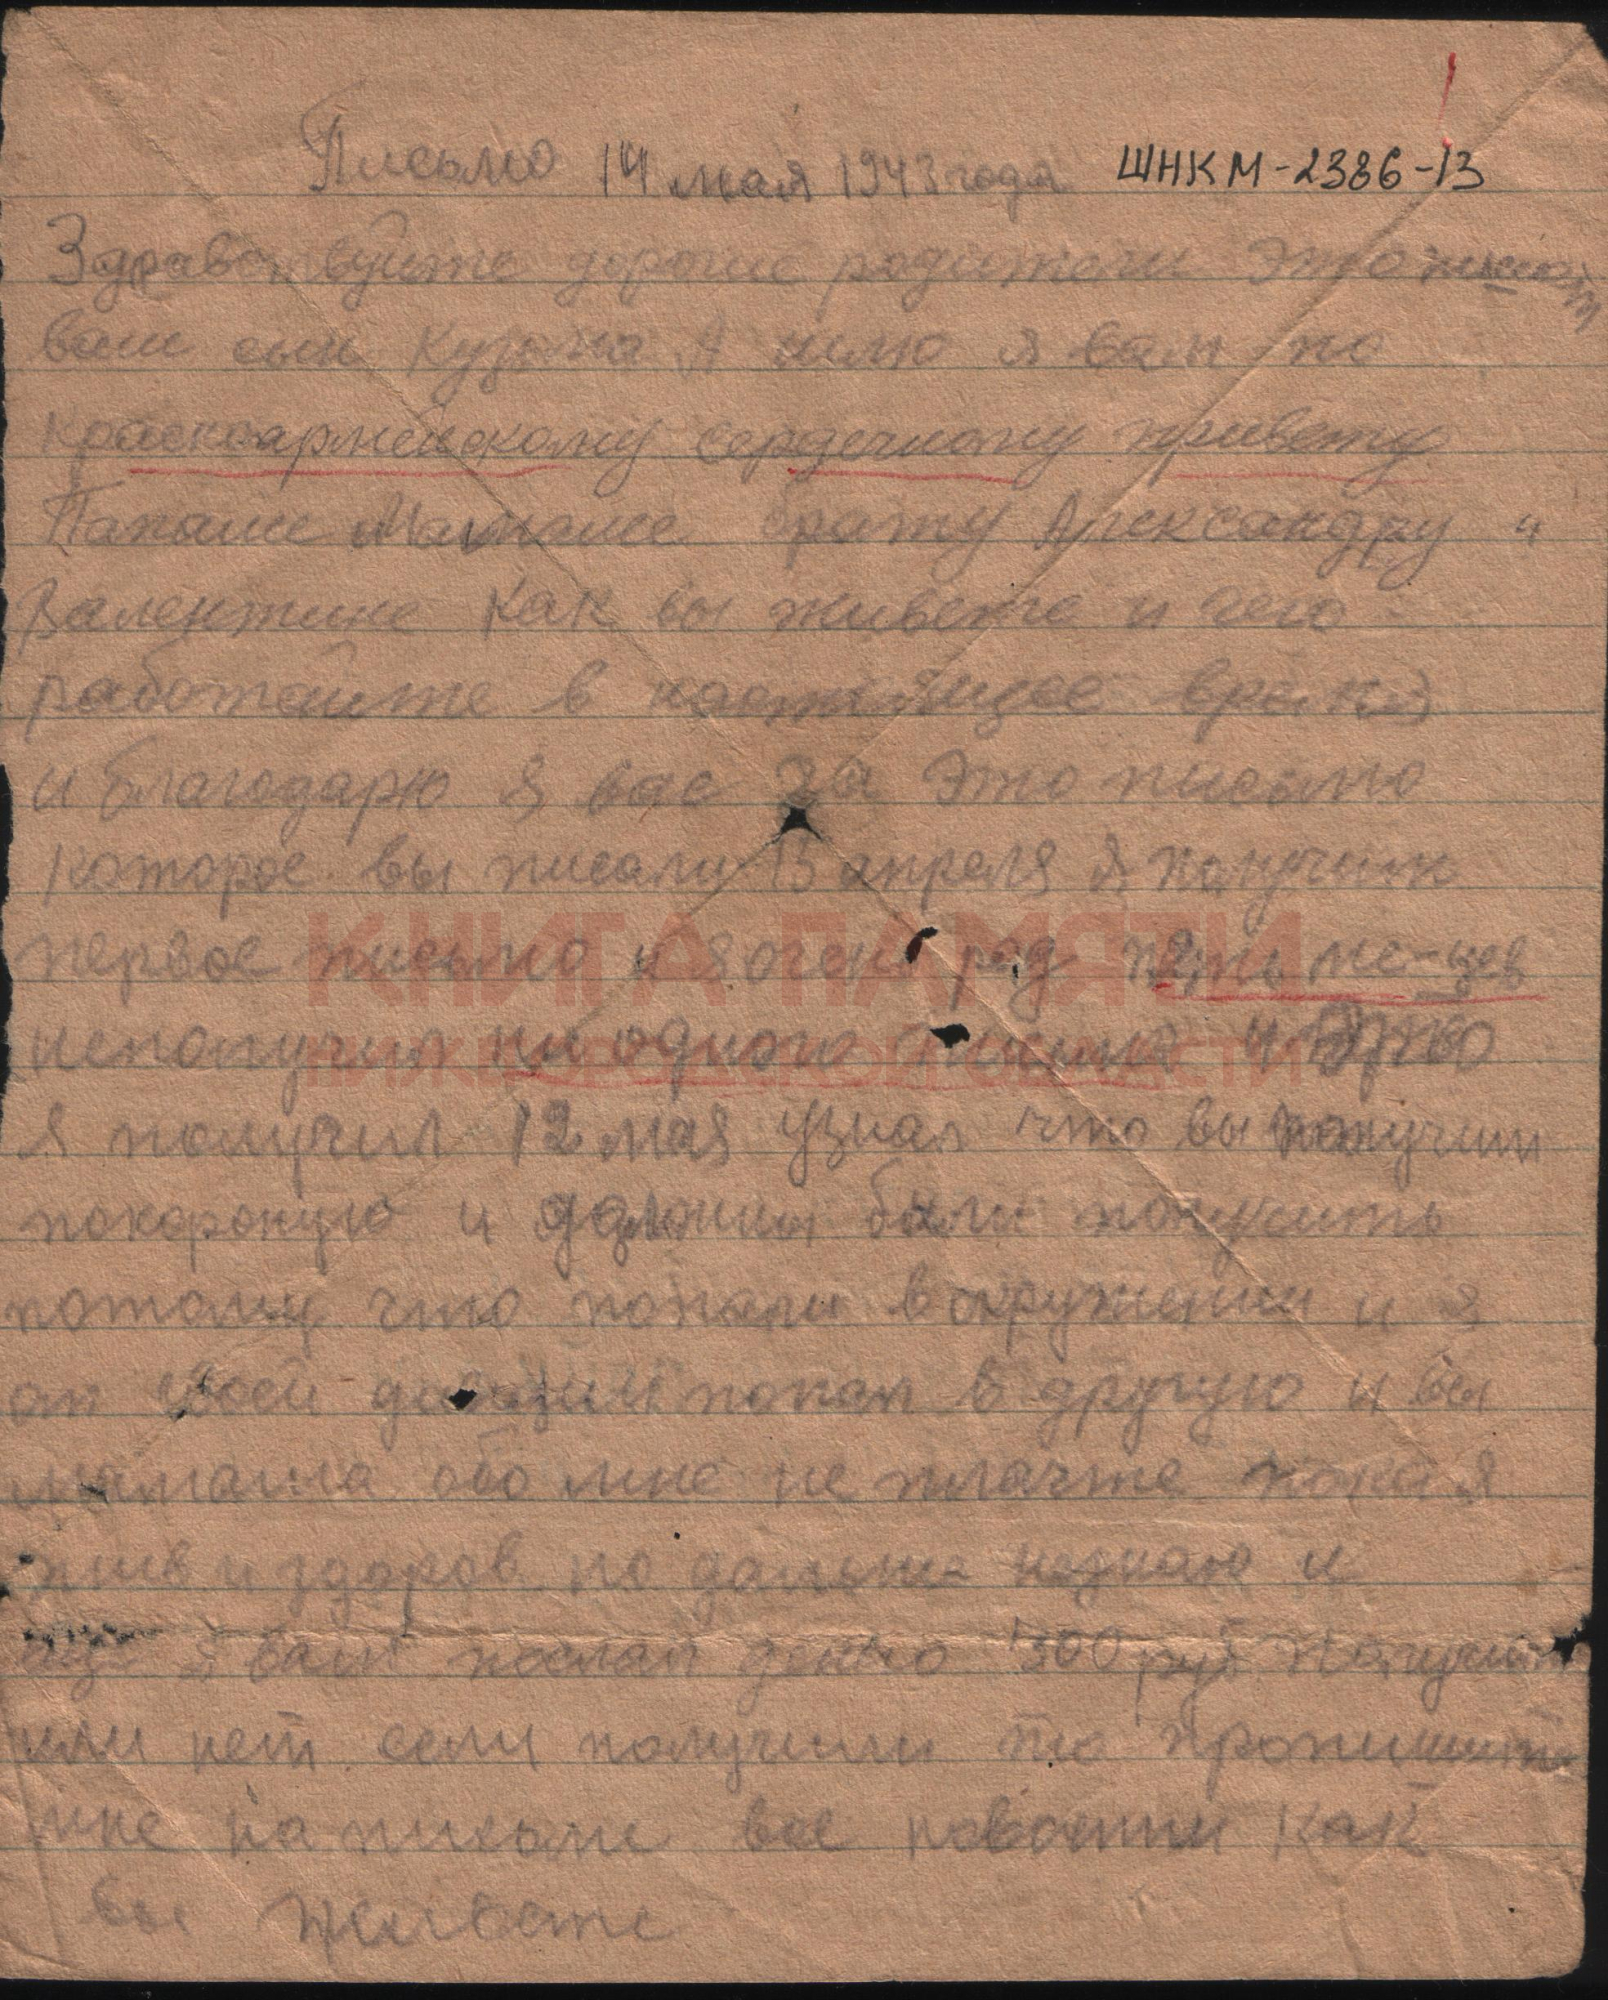 Письмо 14 мая 1943 года ШНКМ-2386-13
Здравствуйте дорогие родители Это пишет
ваш сын Кузьма А шлю я вам по
красноармейскому сердечному привету
Папаше Мамаше брату Александру и
Валентине Как вы живете и чего
работайте в настоящее время
и благодарю я вас за это письмо
которое вы писали 13 апреля я получил
первое письмо и я очень рад пять ме-цев
неполучил ни одного письма и это
я получил 12 мая узнал что вы получили
похороную и должны были получить
потому что попали в окружении и я
от своей дивизии попал в другую и вы
мамаша обо мне не плачте пока я
жив и здоров но дальше незнаю и
я вам послал денег 300 руб получили
или нет если получили то пропишите
мне на письме все новости как
вы живете
КНИГА ПАМЯТИ
НИЖЕГОРОДСКОЙ ОБЛАСТИ